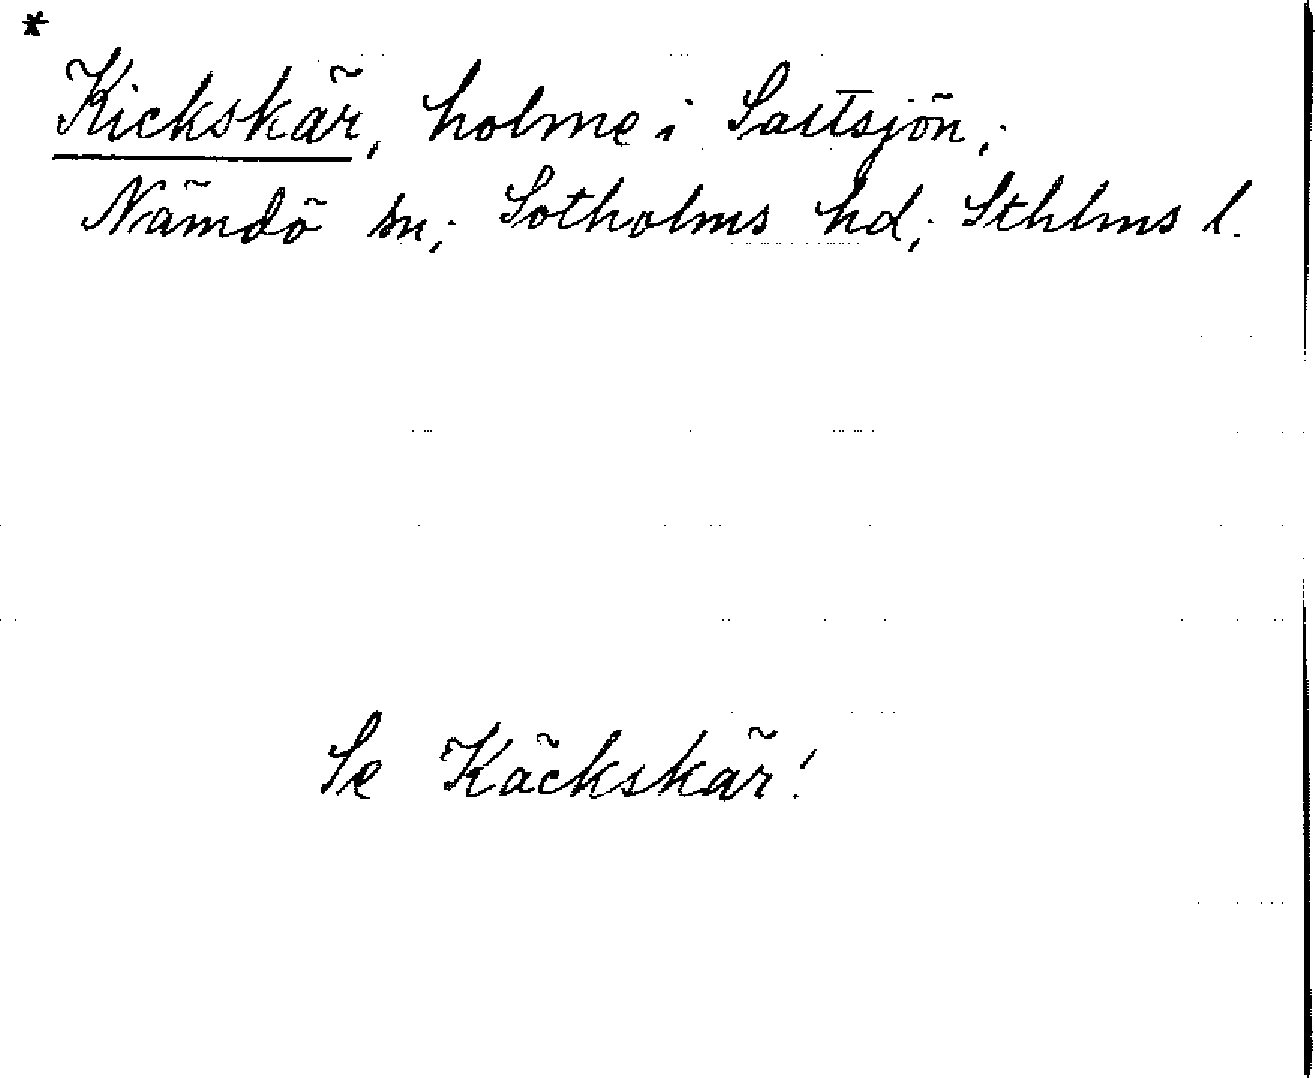 *
Kickskär, holme i Saltsjön;
Nämdö sn; Sotholms hd; Sthlms l.
Se Käckskär!